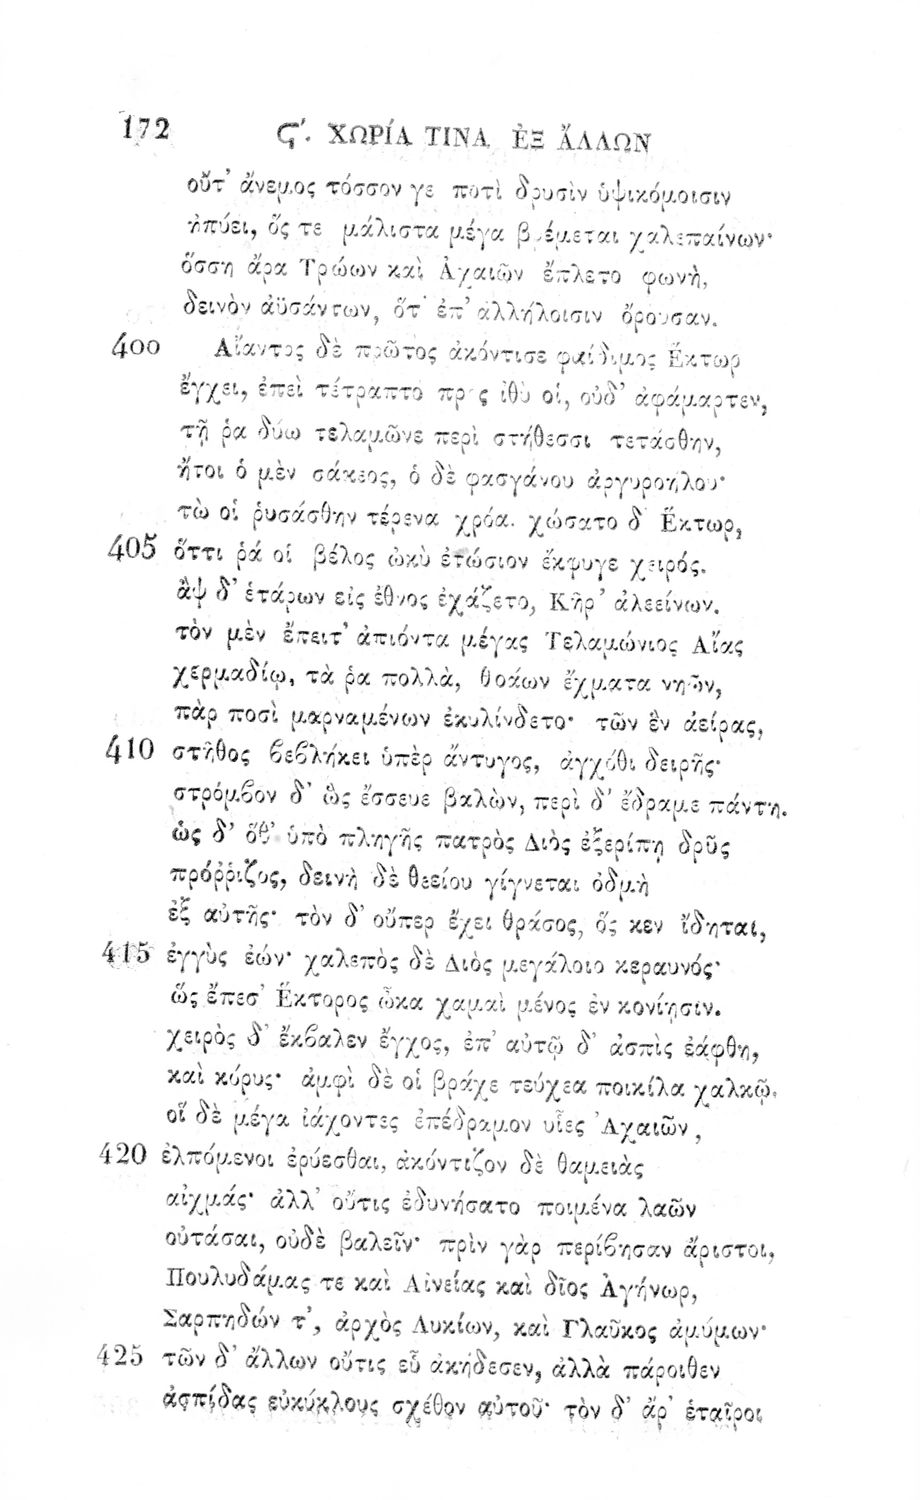 172 Ϛ΄. ΧΩΡΙΆ ΤΙΝΑ ἘΞ ἌΛΛΩΝ
οὔτ᾽ ἄνεμος τόσσον γε ποτὶ δρυσὶν ὑψικόμοισιν
ἠπύει, ὅς τε μάλιστα μέγα βρέμεται χαλεπαίνων·
ὅσση ἄρα Τρώων καὶ Ἀχαιῶν ἔπλετο φωνὴ,
δεινὸν ἀϋσάντων, ὅτ᾽ ἐπ᾽ ἀλλήλοισιν ὄρουσαν.
400 Αἴαντος δὲ πρῶτος ἀκόντισε φαίδιμος Ἕκτωρ
ἔγχει, ἐπεὶ τέτραπτο πρὸς ἰθύ οἱ, οὐδ᾽ ἀφάμαρτεν,
τῇ ῥα δύω τελαμῶνε περὶ στήθεσσι τετάσθην,
ἤτοι ὁ μὲν σάκεος, ὁ δὲ φασγάνου ἀργυροήλου·
τὼ οἱ ῥυσάσθην τέρενα χρόα. χώσατο δ᾽ Ἕκτωρ,
405 ὅττι ῥά οἱ βέλος ὠκὺ ἐτώσιον ἔκφυγε χειρός.
ἂψ δ᾽ ἑτάρων εἰς ἔθνος ἐχάζετο, Κῆρ᾽ ἀλεείνων.
τὸν μὲν ἔπειτ᾽ ἀπιόντα μέγας Τελαμώνιος Αἴας
χερμαδίῳ, τὰ ῥα πολλὰ, θοάων ἔχματα νηῶν,
πὰρ ποσὶ μαρναμένων ἐκυλίνδετο· τῶν ἓν ἀείρας,
410 στῆθος βεϐλήκει ὑπὲρ ἄντυγος, ἀγχόθι δειρῆς·
στρόμϐον δ᾽ ὣς ἔσσευε βαλὼν, περὶ δ᾽ ἔδραμε πάντη.
ὡς δ᾽ ὅθ᾽ ὑπὸ πληγῆς πατρὸς Διὸς ἐξερίπῃ δρῦς
πρόῤῥιζος, δεινὴ δὲ θεείου γίγνεται ὀδμὴ
ἐξ αὐτῆς· τὸν δ᾽ οὔπερ ἔχει θράσος, ὅς κεν ἴδηται,
415 ἐγγὺς ἐών· χαλεπὸς δὲ Διὸς μεγάλοιο κεραυνός·
ὣς ἔπεσ᾽ Ἕκτορος ὦκα χαμαὶ μένος ἐν κονίῃσιν.
χειρὸς δ᾽ ἔκϐαλεν ἔγχος, ἐπ᾽ αὐτῷ δ᾽ ἀσπὶς ἐάφθη,
καὶ κόρυς· ἀμφὶ δὲ οἱ βράχε τεύχεα ποικίλα χαλκῷ.
οἵ δὲ μέγα ἰάχοντες ἐπέδραμον υἷες Ἀχαιῶν,
420 ἐλπόμενοι ἐρύεσθαι, ἀκόντιζον δὲ θαμειὰς
αἰχμάς· ἀλλ᾽ οὔτις ἐδυνήσατο ποιμένα λαῶν
οὐτάσαι, οὐδὲ βαλεῖν· πρὶν γὰρ περίϐησαν ἄριστοι,
Πουλυδάμας τε καὶ Αἰνείας καὶ δῖος Ἀγήνωρ,
Σαρπηδών τ᾽, ἀρχὸς Λυκίων, καὶ Γλαῦκος ἀμύμων·
425 τῶν δ᾽ ἄλλων οὔτις εὗ ἀκήδεσεν, ἀλλὰ πάροιθεν
ἀσπίδας εὐκύκλους σχέθον αὐτοῦ· τὸν δ᾽ ἄρ᾽ ἑταῖροι